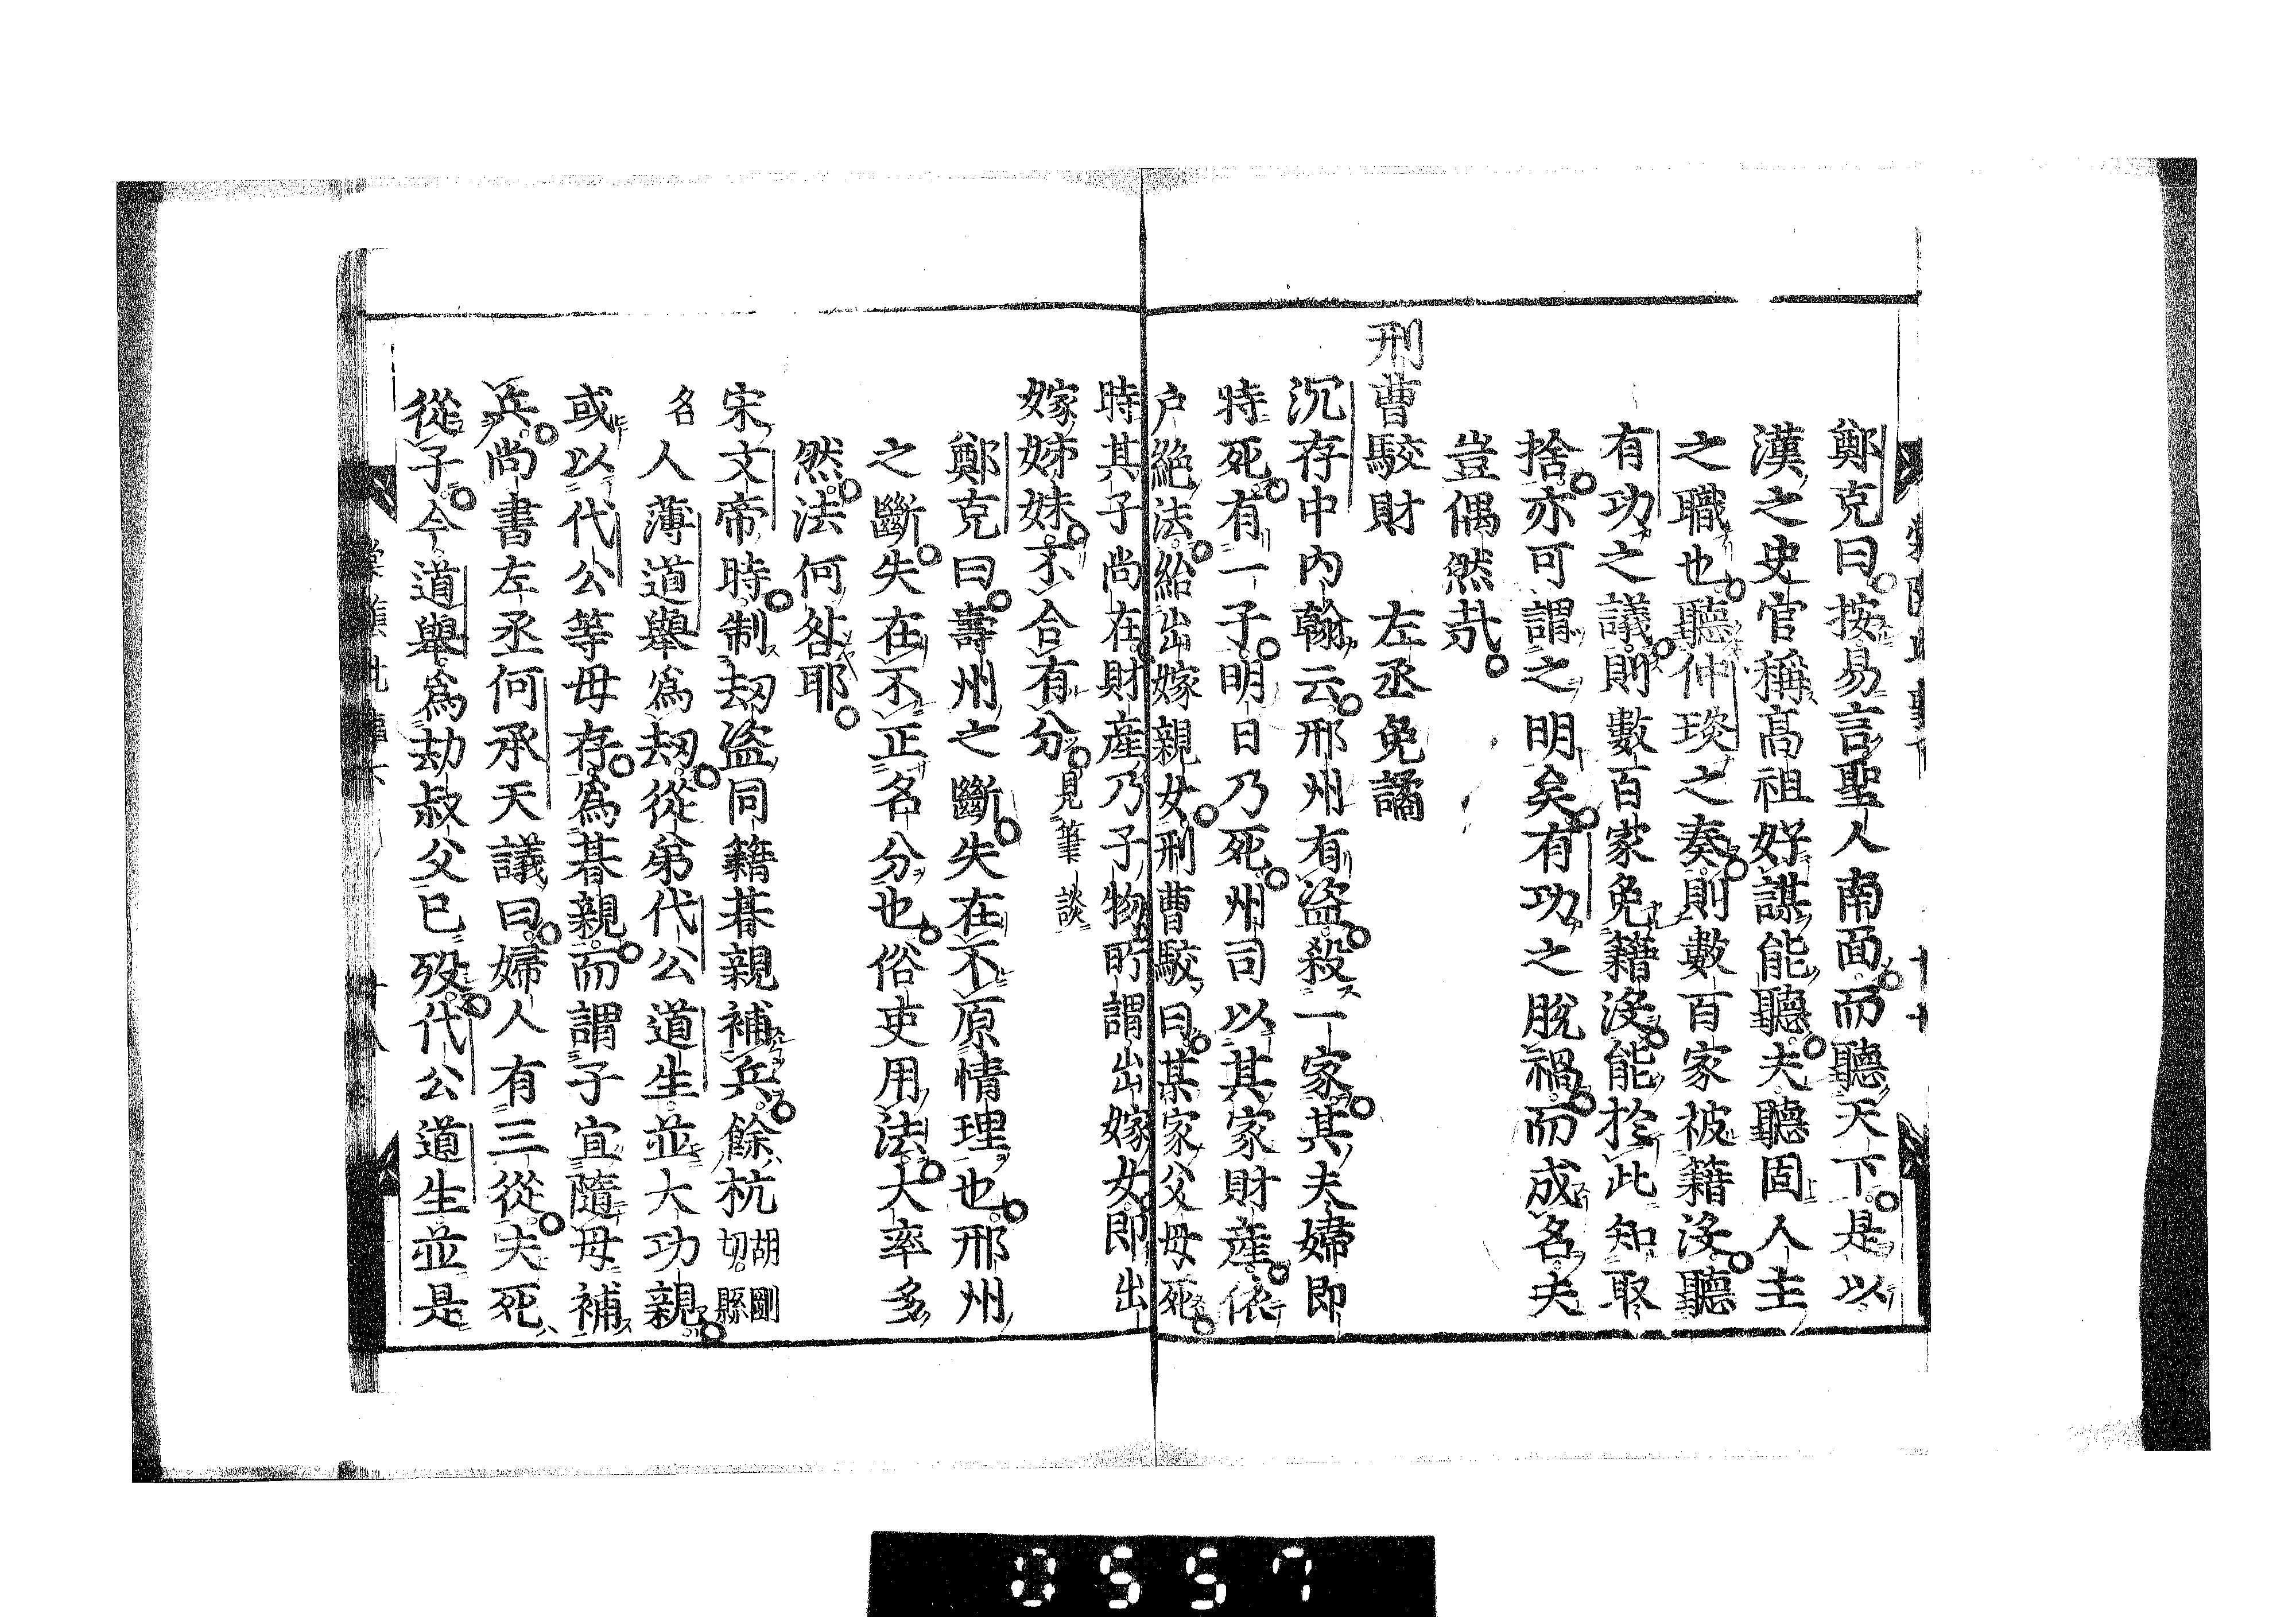 鄭克曰按易言聖人南面而聽天下是以
漢之史官稱高祖好謀能聽夫聽固人主
之職也聽仲琰之奏則數百家被籍沒聽
有功之議則數百家免籍沒能於此知取
捨亦可謂之明矣有功之脫禍而成名夫
豈偶然哉
刑曹駮財　左丞免譎
沉存中內翰云邢州有盜殺一家其夫婦即
時死有一子明日乃死州司以其家財產依
户絕法給出嫁親女刑曹駮曰某家父母死
時其子尚在財產乃子物所謂出嫁女即出
嫁姊妹不合有分見筆談
鄭克曰壽州之斷失在不原情理也邢州
之斷失在不正名分也俗吏用法大率多
然法何咎耶
宋文帝時制劫盜同籍朞親補兵餘杭胡剛切縣
名人薄道舉爲劫從弟代公道生並大功親
或以代公等母存爲朞親而謂子宜隨母補
兵尚書左丞何承天議曰婦人有三從夫死
從子今道舉爲劫叔父已歿代公道生並是
0557